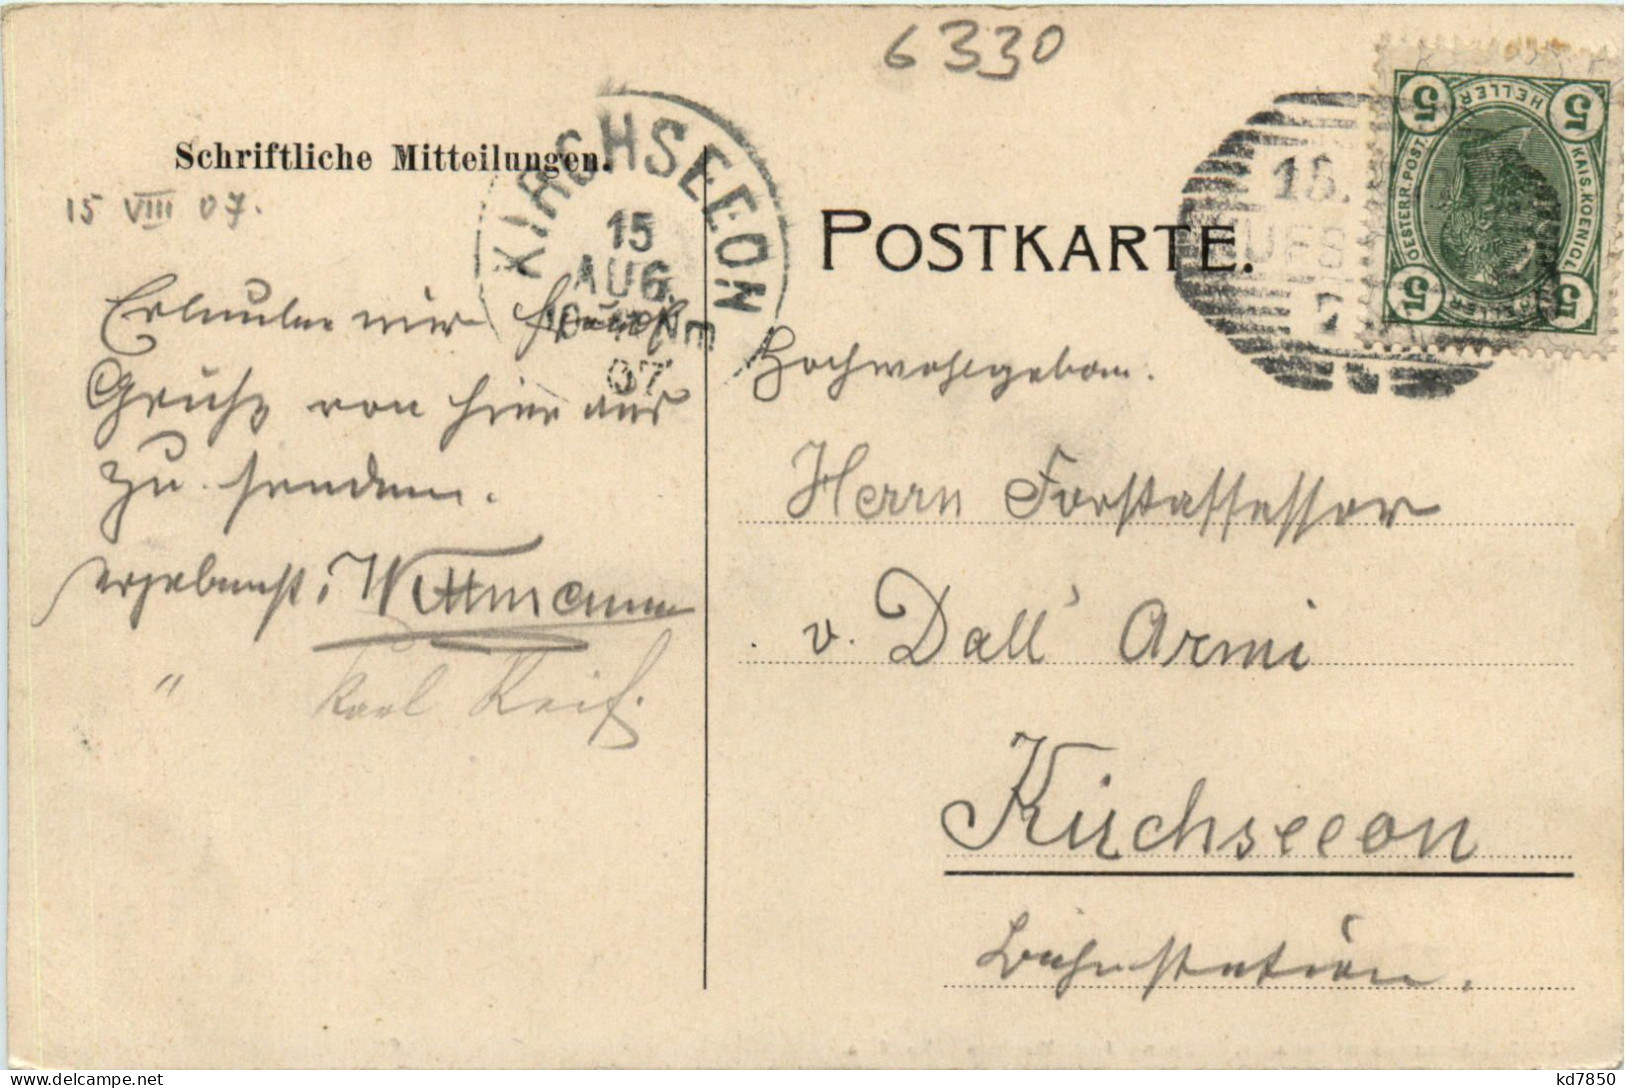 6330
Schriftliche Mitteilungen.
15 VIII 07.
KIRCHSEEON
15
AUG.
07
Erlaube mir
Gruß von hier aus
zu senden.
ergebenst. Wittmann
" Karl Reif.
POSTKARTE.
15.
7
5 HELLER 5
OESTERR. POST.
KAIS. KOENIGL.
5 HELLER 5
Hochwohlgeboren.
Herrn Forstassessor
v. Dall' Armi
Kirchseeon
Bahnstation.
kd7850